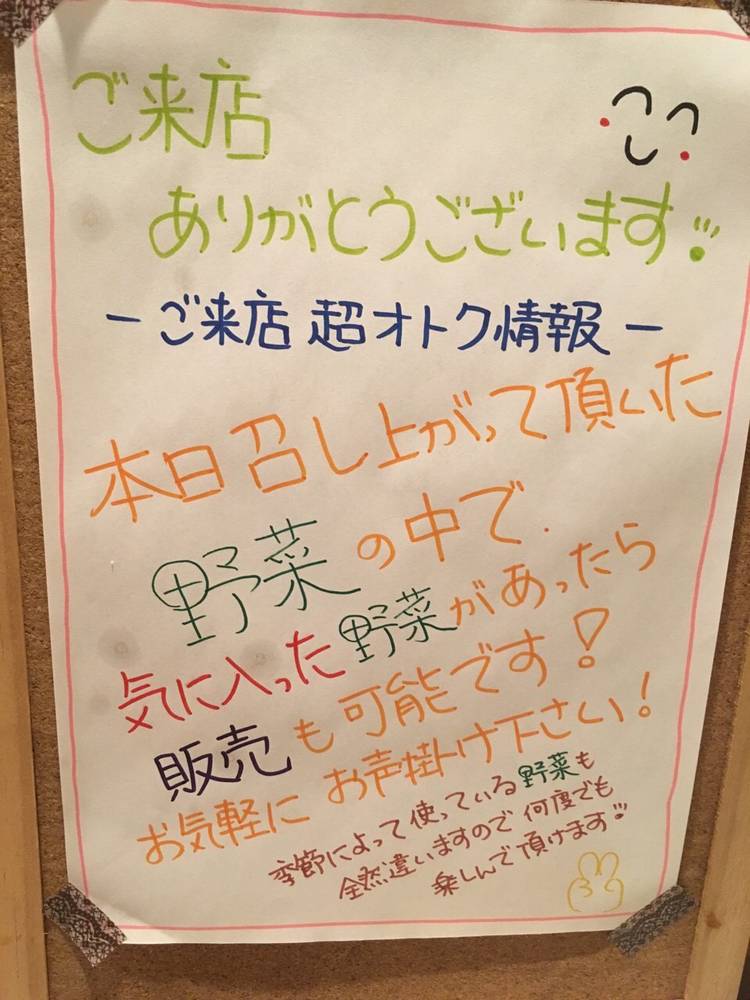 ご来店
ありがとうございます!!
ー ご来店 超オトク情報 ー
本日召し上がって頂いた
野菜の中で
気に入った野菜があったら
販売も可能です!
お気軽にお声掛け下さい!
季節によって使っている野菜も
全然違いますので何度でも
楽しんで頂けます!!